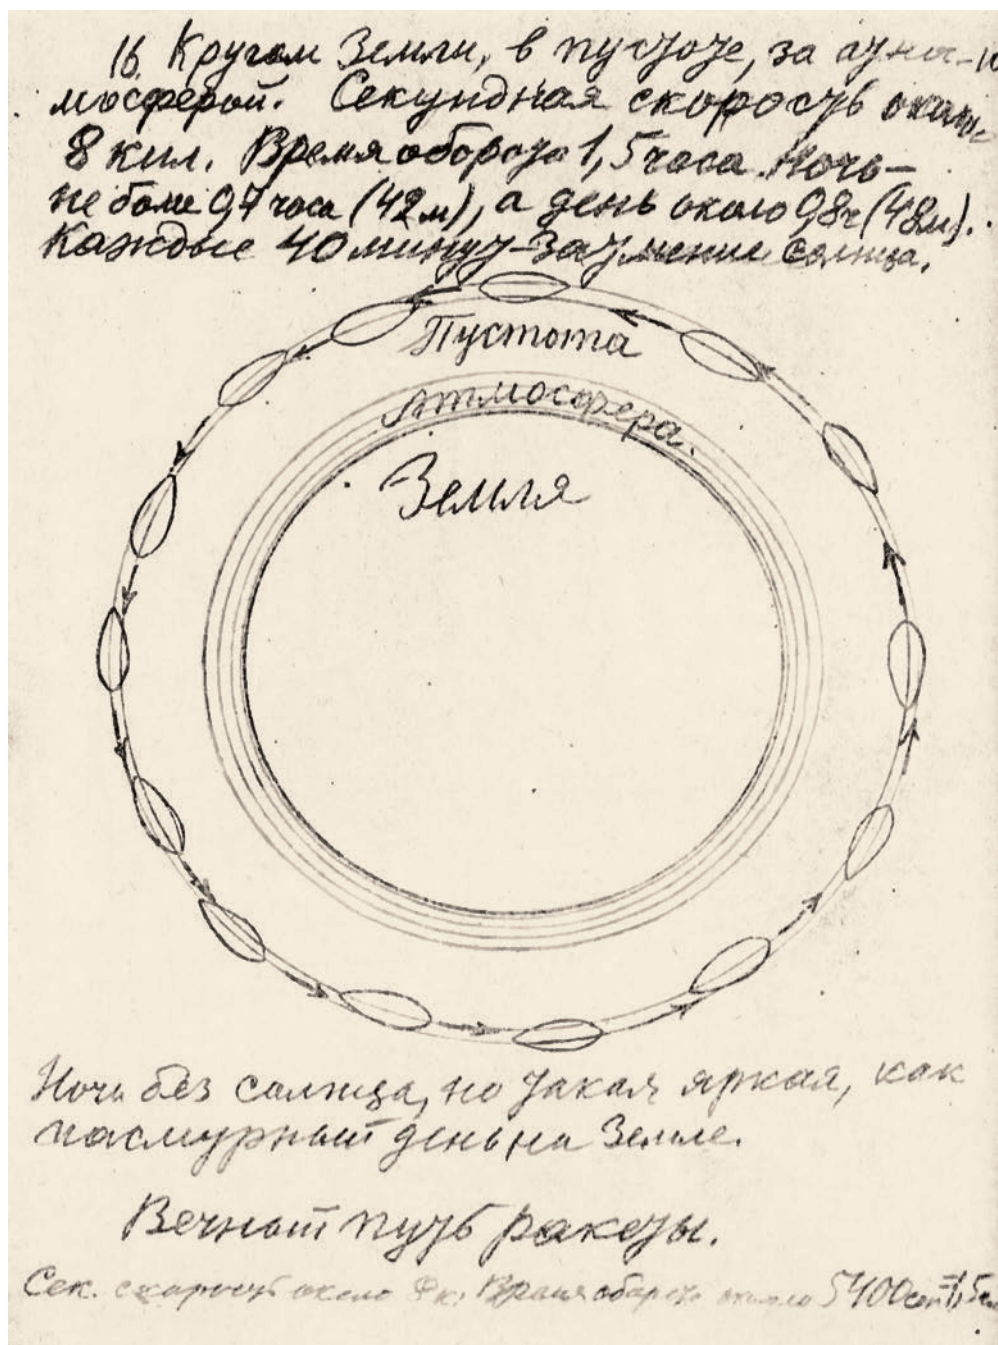 16. Кругом Земли, в пустоте, за ат-
мосферой. Секундная скорость около
8 кил. Время оборота 1,5 часа. Ночь –
не боле 0,7 часа (42 м), а день около 0,8 ч (48 м).
Каждые 40 минут – затмение солнца.
Пустота
Атмосфера.
Земля
Ночь без солнца, но такая яркая, как
пасмурный день на Земле.
Вечный путь ракеты.
Сек. скорость около 8 к. Время оборота около 5400 сек = 1,5